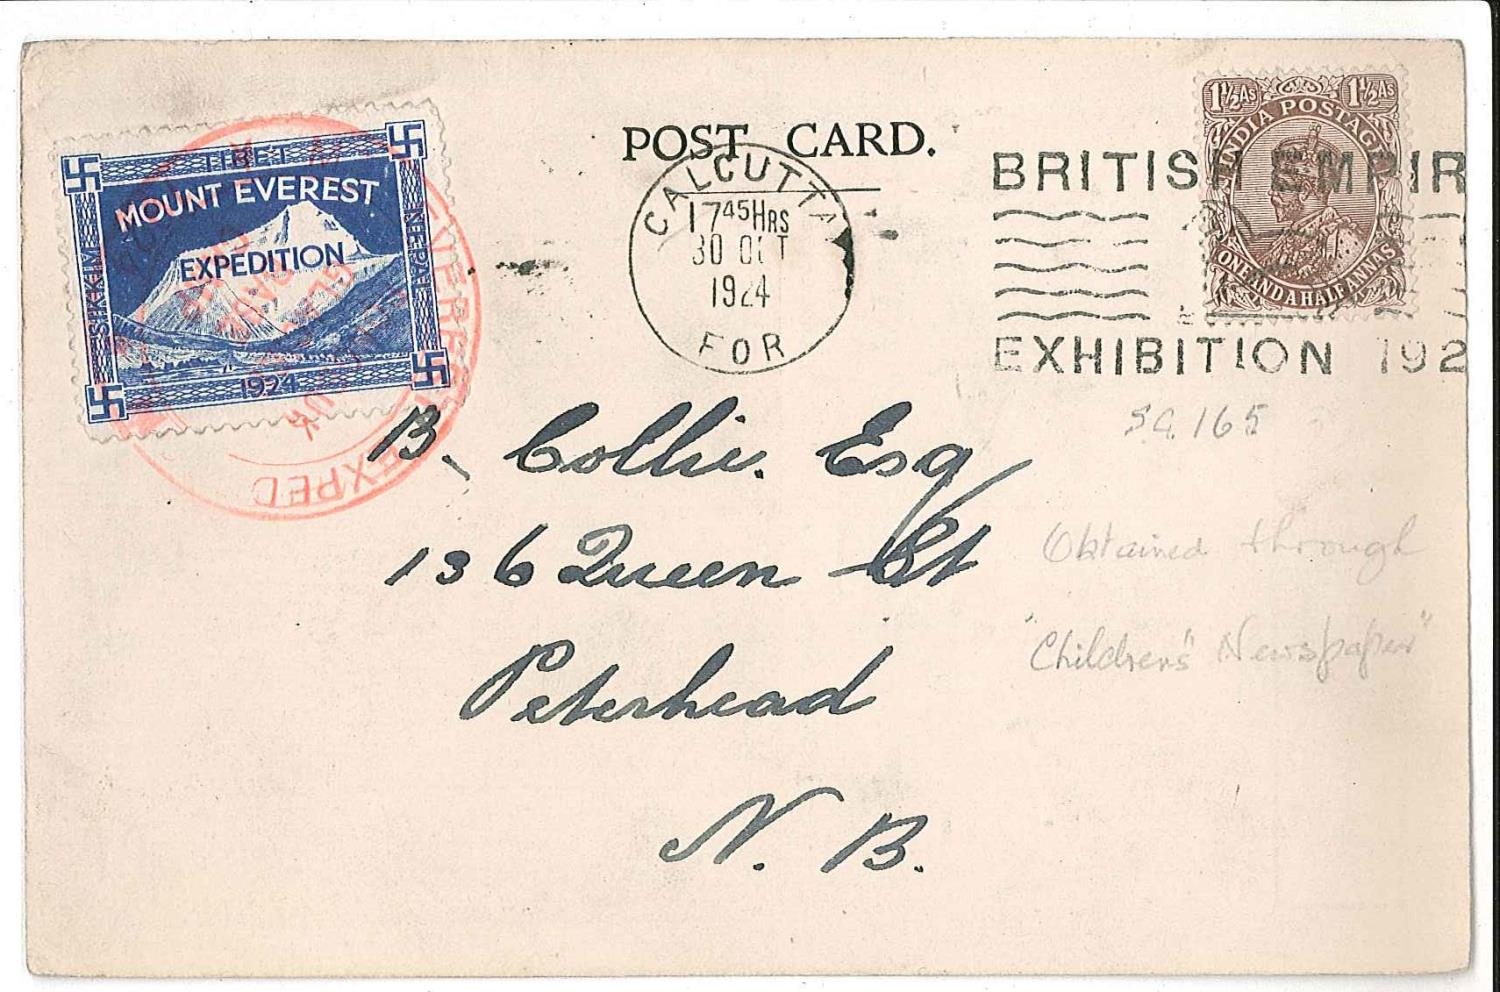 POST CARD.
TIBET
MOUNT EVEREST
EXPEDITION
SIKKIM
NEPAL
1924
EXPED
CALCUTTA
17 45 HRS
30 OCT
1924
FOR
BRITISH EMPIR
EXHIBITION 192
1½As 1½As
INDIA POSTAGE
ONE AND A HALF ANNAS
S.G. 165
B. Collie. Esq
136 Queen St
Peterhead
N. B.
Obtained through
"Children's" Newspaper"